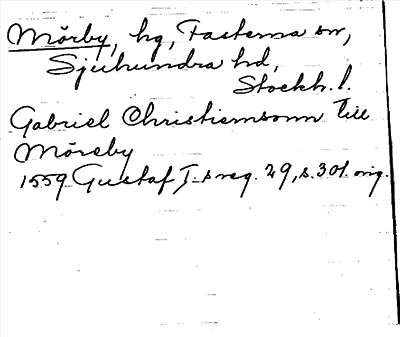 Mörby, hg, Fasterna sn,
Sjuhundra hd,
Stockh. l.
Gabriel Christiernsonn till
Möreby
1559 Gustaf I:s reg. 29, s. 301. orig.